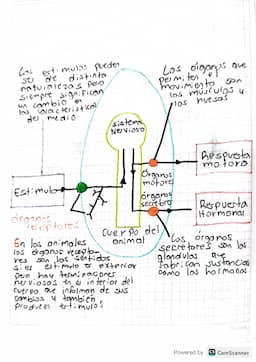 Los estimulos pueden
ser de distinta
naturaleza pero
siempre significan
un cambio en
las características
del medio
Los órganos que
permiten el
movimiento son
los músculos y
los huesos
sistema
Nervioso
Respuesta
motora
Órganos
motores
Estimulo
Órganos
secretores
Respuesta
Hormonal
Cuerpo del
animal
órganos
receptores
En los animales
los órganos recepto-
res son los sentidos
si es estimulo es exterior
pero hay terminaciones
nerviosas en el interior del
cuerpo que informan de sus
cambios y también
producen estimulos
Los órganos
secretores son las
glandulas que
fabrican sustancias
como las hormonas
Powered by CS CamScanner